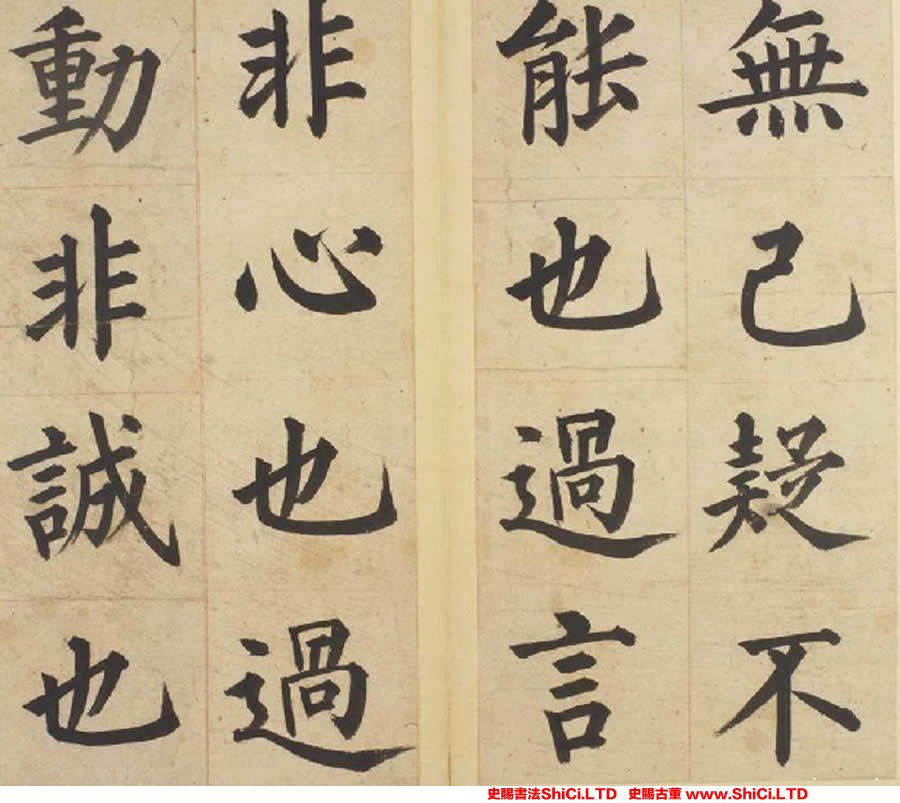 無己疑不
能也過言
非心也過
動非誠也
史賜書法ShiCi.LTD 史賜古董 www.ShiCi.LTD